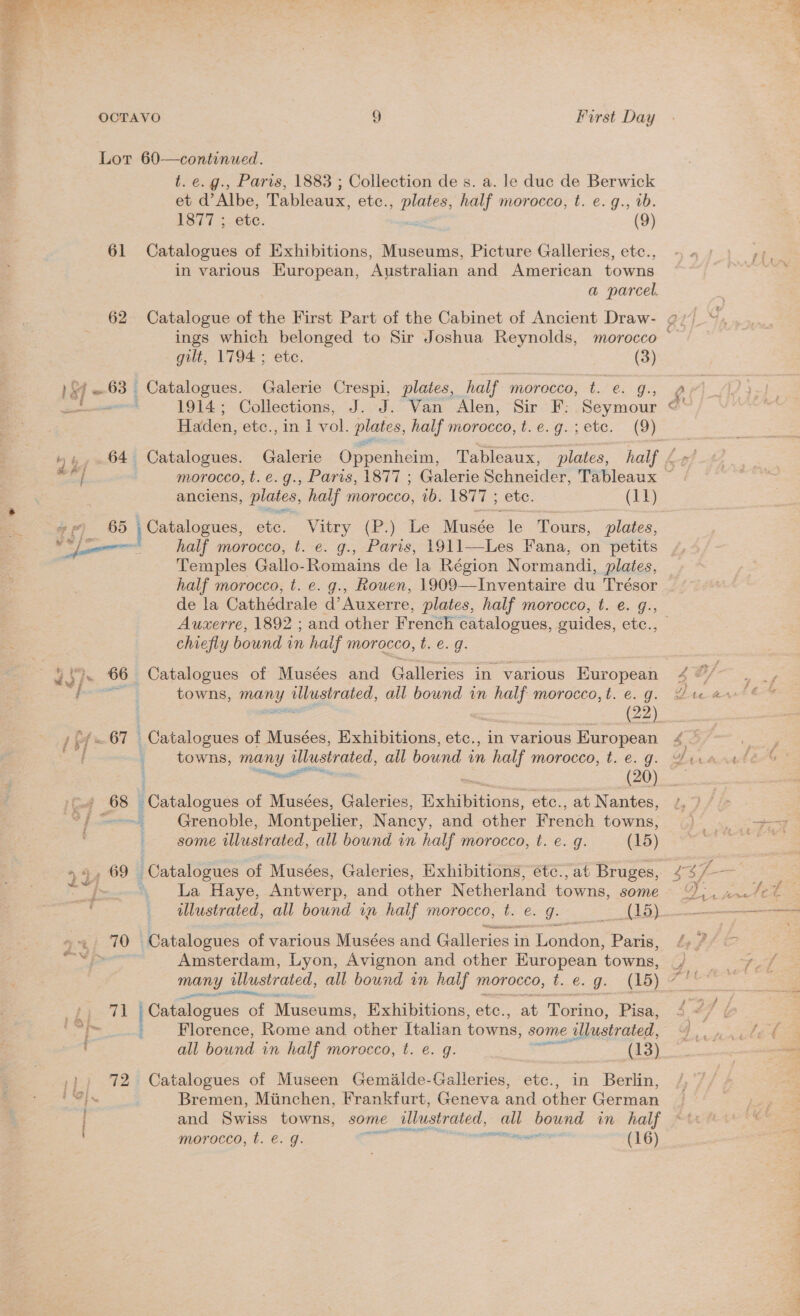 OCTAVO 9 First Day
Lot 60—continued.
t. e. g., Paris, 1883 ; Collection de s. a. le duc de Berwick
et d'Albe, Tableaux, etc., plates, half morocco, t. e. g., ib.
1877 ; etc. (9)
61 Catalogues of Exhibitions, Museums, Picture Galleries, etc.,
in various European, Australian and American towns
a parcel.
62 Catalogue of the First Part of the Cabinet of Ancient Draw-
ings which belonged to Sir Joshua Reynolds, morocco
gilt, 1794 ; etc. (3)
63 Catalogues. Galerie Crespi, plates, half morocco, t. e. g.,
1914 ; Collections, J. J. Van Alen, Sir F. Seymour
Haden, etc., in 1 vol. plates, half morocco, t. e. g. ; etc. (9)
64 Catalogues. Galerie Oppenheim, Tableaux, plates, half
morocco, t. e. g., Paris, 1877 ; Galerie Schneider, Tableaux
anciens, plates, half morocco, ib. 1877 ; etc. (11)
65 Catalogues, etc. Vitry (P.) Le Musée le Tours, plates,
half morocco, t. e. g., Paris, 1911—Les Fana, on petits
Temples Gallo-Romains de la Région Normandi, plates,
half morocco, t. e. g., Rouen, 1909—Inventaire du Trésor
de la Cathédrale d'Auxerre, plates, half morocco, t. e. g.,
Auxerre, 1892 ; and other French catalogues, guides, etc.,
chiefly bound in half morocco, t. e. g.
66 Catalogues of Musées and Galleries in various European
towns, many illustrated, all bound in half morocco, t. e. g.
(22)
67 Catalogues of Musées, Exhibitions, etc., in various European
towns, many illustrated, all bound in half morocco, t. e. g.
(20)
68 Catalogues of Musées, Galeries, Exhibitions, etc., at Nantes,
Grenoble, Montpelier, Nancy, and other French towns,
some illustrated, all bound in half morocco, t. e. g. (15)
69 Catalogues of Musées, Galeries, Exhibitions, etc., at Bruges,
La Haye, Antwerp, and other Netherland towns, some
illustrated, all bound in half morocco, t. e. g. (15)
70 Catalogues of various Musées and Galleries in London, Paris,
Amsterdam, Lyon, Avignon and other European towns,
many illustrated, all bound in half morocco, t. e. g. (15)
71 Catalogues of Museums, Exhibitions, etc., at Torino, Pisa,
Florence, Rome and other Italian towns, some illustrated,
all bound in half morocco, t. e. g. (13)
72 Catalogues of Museen Gemälde-Galleries, etc., in Berlin,
Bremen, München, Frankfurt, Geneva and other German
and Swiss towns, some illustrated, all bound in half
morocco, t. e. g. (16)